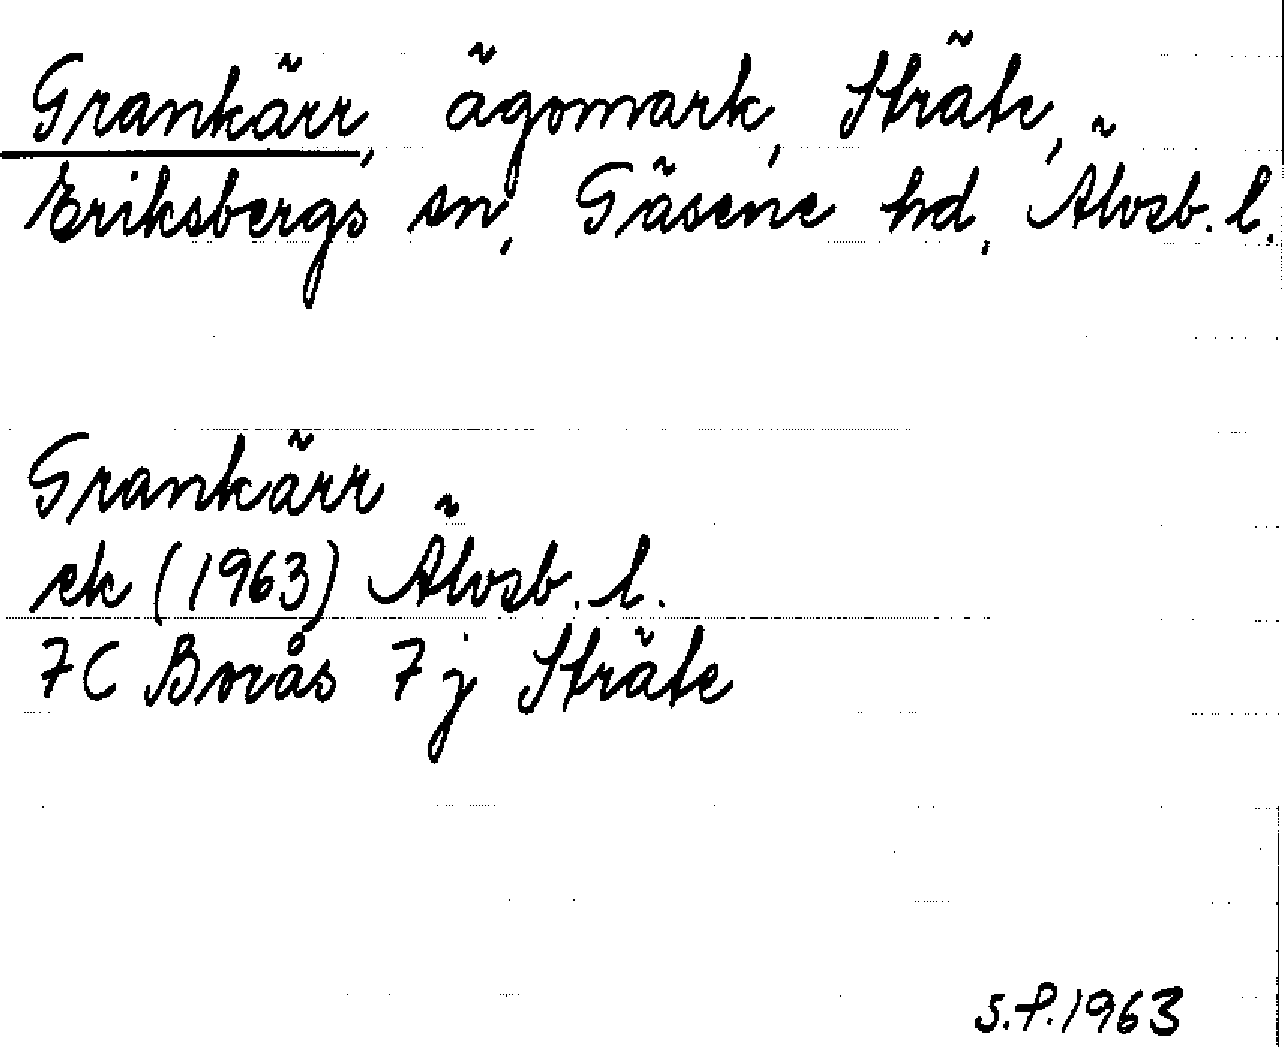 Grankärr, ägomark, Sträte,
Eriksbergs sn, Gäsene hd, Älvsb. l.
Grankärr
ek (1963) Älvsb. l.
7C Borås 7j Sträte
S.F. 1963